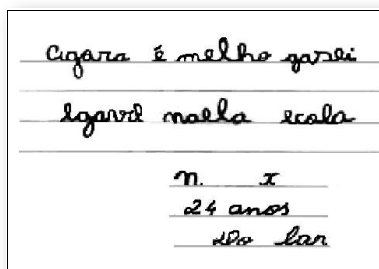 cigara é melho garsei
egavrel naela ecola
n. x
24 anos
do lar